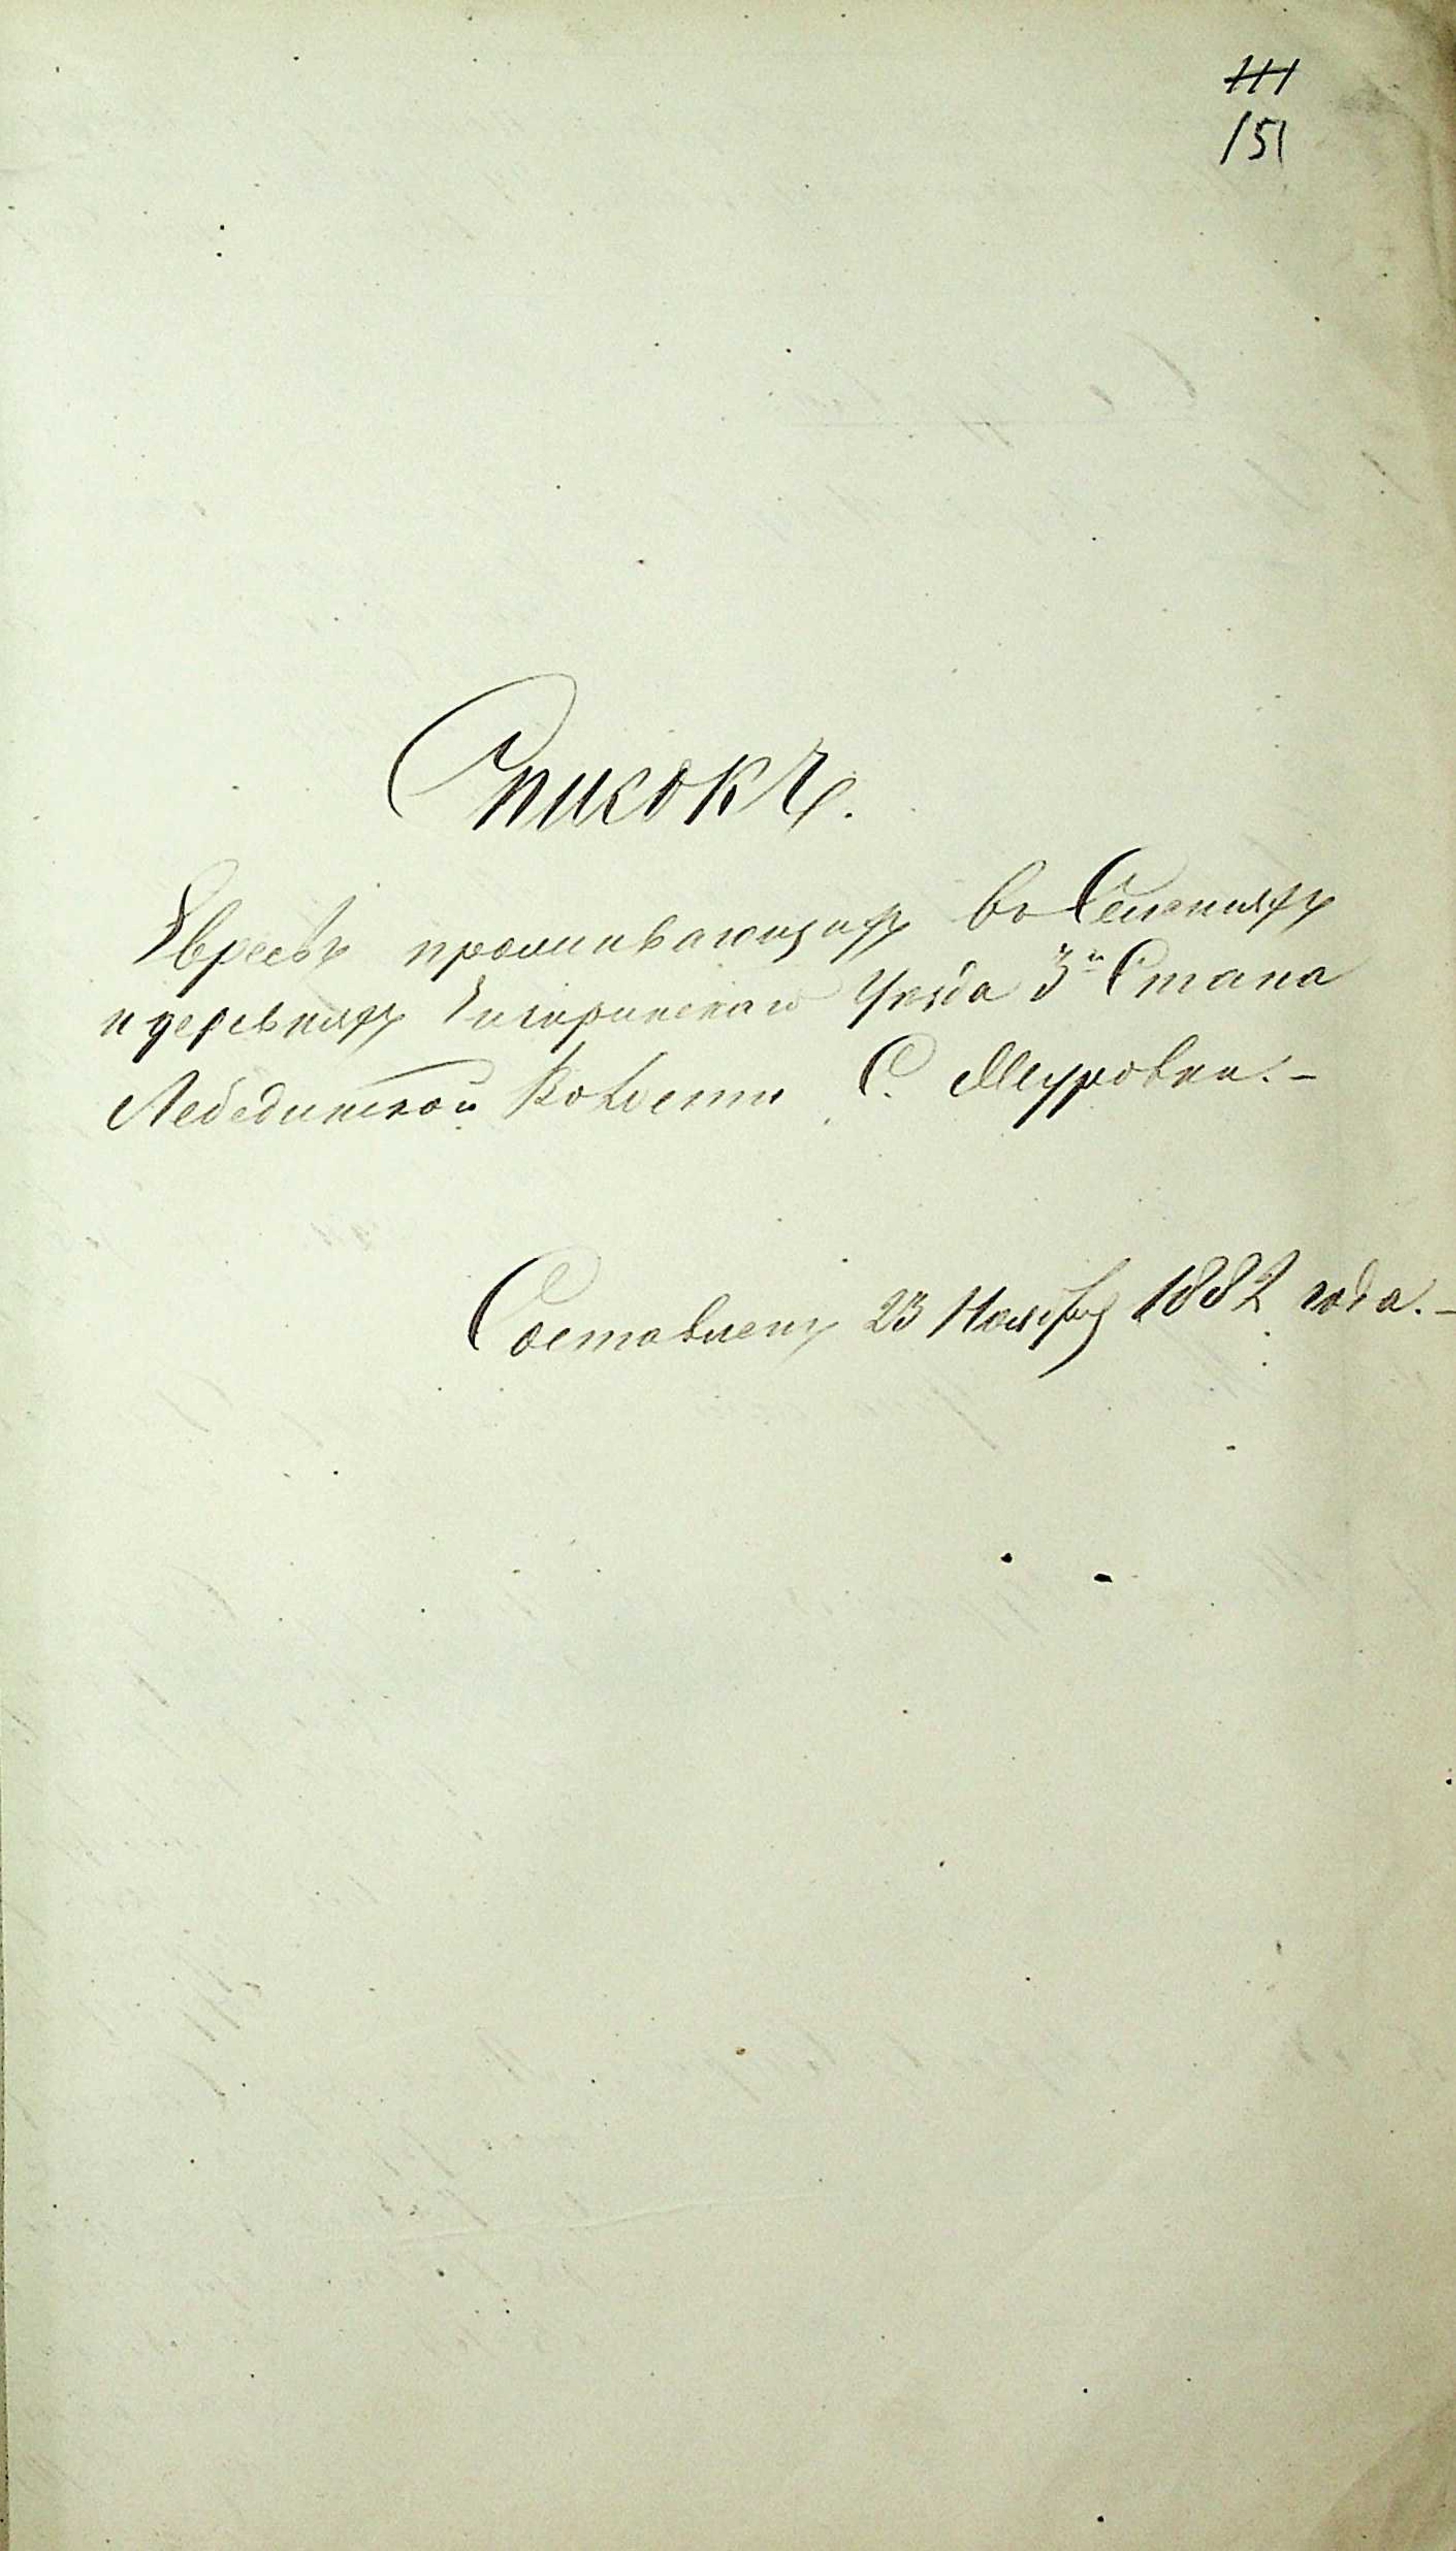 111
151
Списокъ.
Евреевъ проживающихъ во Селенияхъ
и деревняхъ Чигиринскаго Уезда 3го Стана
Лебединской Волости С. Макуровки. –
Составленъ 23 Ноября 1882 года. –